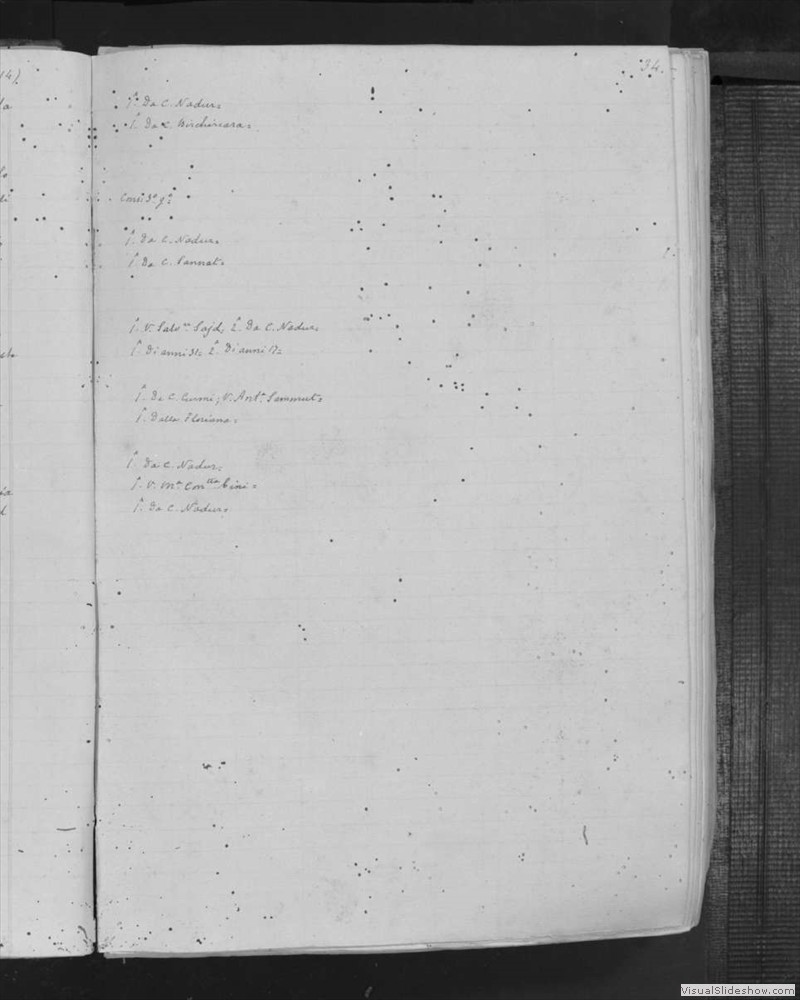 14)
34.
1º. Da C. Nadur=
1º. Da C. Birchircara=
Cons: 3º gº
1º. Da C. Nadur=
1º. Da C. Sannat=
1º. V. Salv.re Said, 2º. Da C. Nadur=
1º. Di anni 31= 2º. Di anni 17=
1º. Da C. Curmi, V. Ant.º Sammut=
1º. Dalla Floriana=
1º. Da C. Nadur=
1º. V. M.a Con.tta Cini=
1º. Da C. Nadur=
VisualSlideshow.com